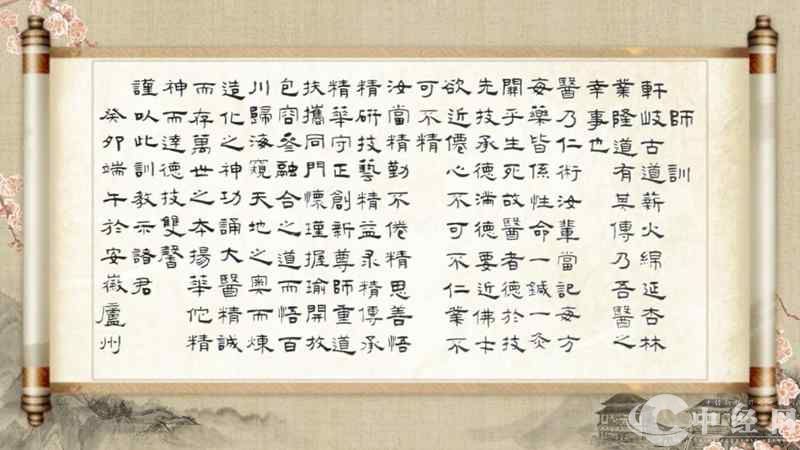 師訓
軒岐古道薪火綿延杏林
業隆道有其傳乃吾醫之
幸事也
醫乃仁術汝輩當記每方
每藥皆係性命一鍼一灸
關乎生死故醫者德於技
先技承德滿德要近佛才
欲近僊心不可不仁業不
可不精
汝當精勤不倦精思善悟
精研技藝精益求精傳承
精華守正創新尊師重道
扶攜同門懷瑾握瑜開放
包容參融合之道而悟百
川歸海窺天地之奧而煉
造化之神功誦大醫精誠
而存萬世之本揚華佗精
神而達德技雙馨
謹以此訓教示諸君
癸卯端午於安徽廬州
中经网